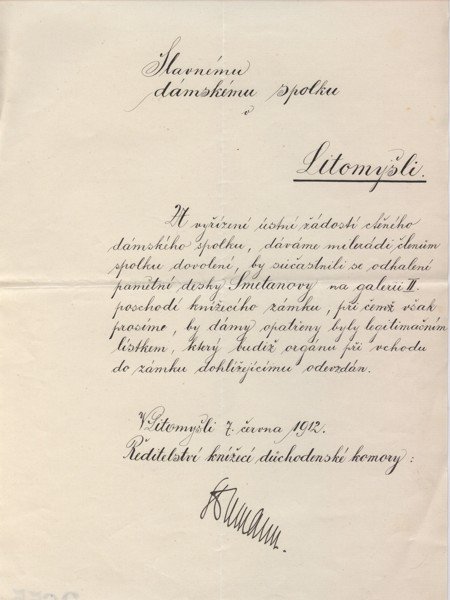 Slavnému
dámskému spolku
v
Litomyšli.
U vyřízení ústní žádosti ctěného
dámského spolku, dáváme milerádi členům
spolku dovolení, by súčastnili se odhalení
pamětní desky Smetanovy na galerii II.
poschodí knížecího zámku, při čemž však
prosíme, by dámy opatřeny byly legitimačním
lístkem, který budiž orgánu při vchodu
do zámku dohlížejícímu odevzdán.
V Litomyšli 7. června 1912.
Ředitelství knížecí důchodenské komory: